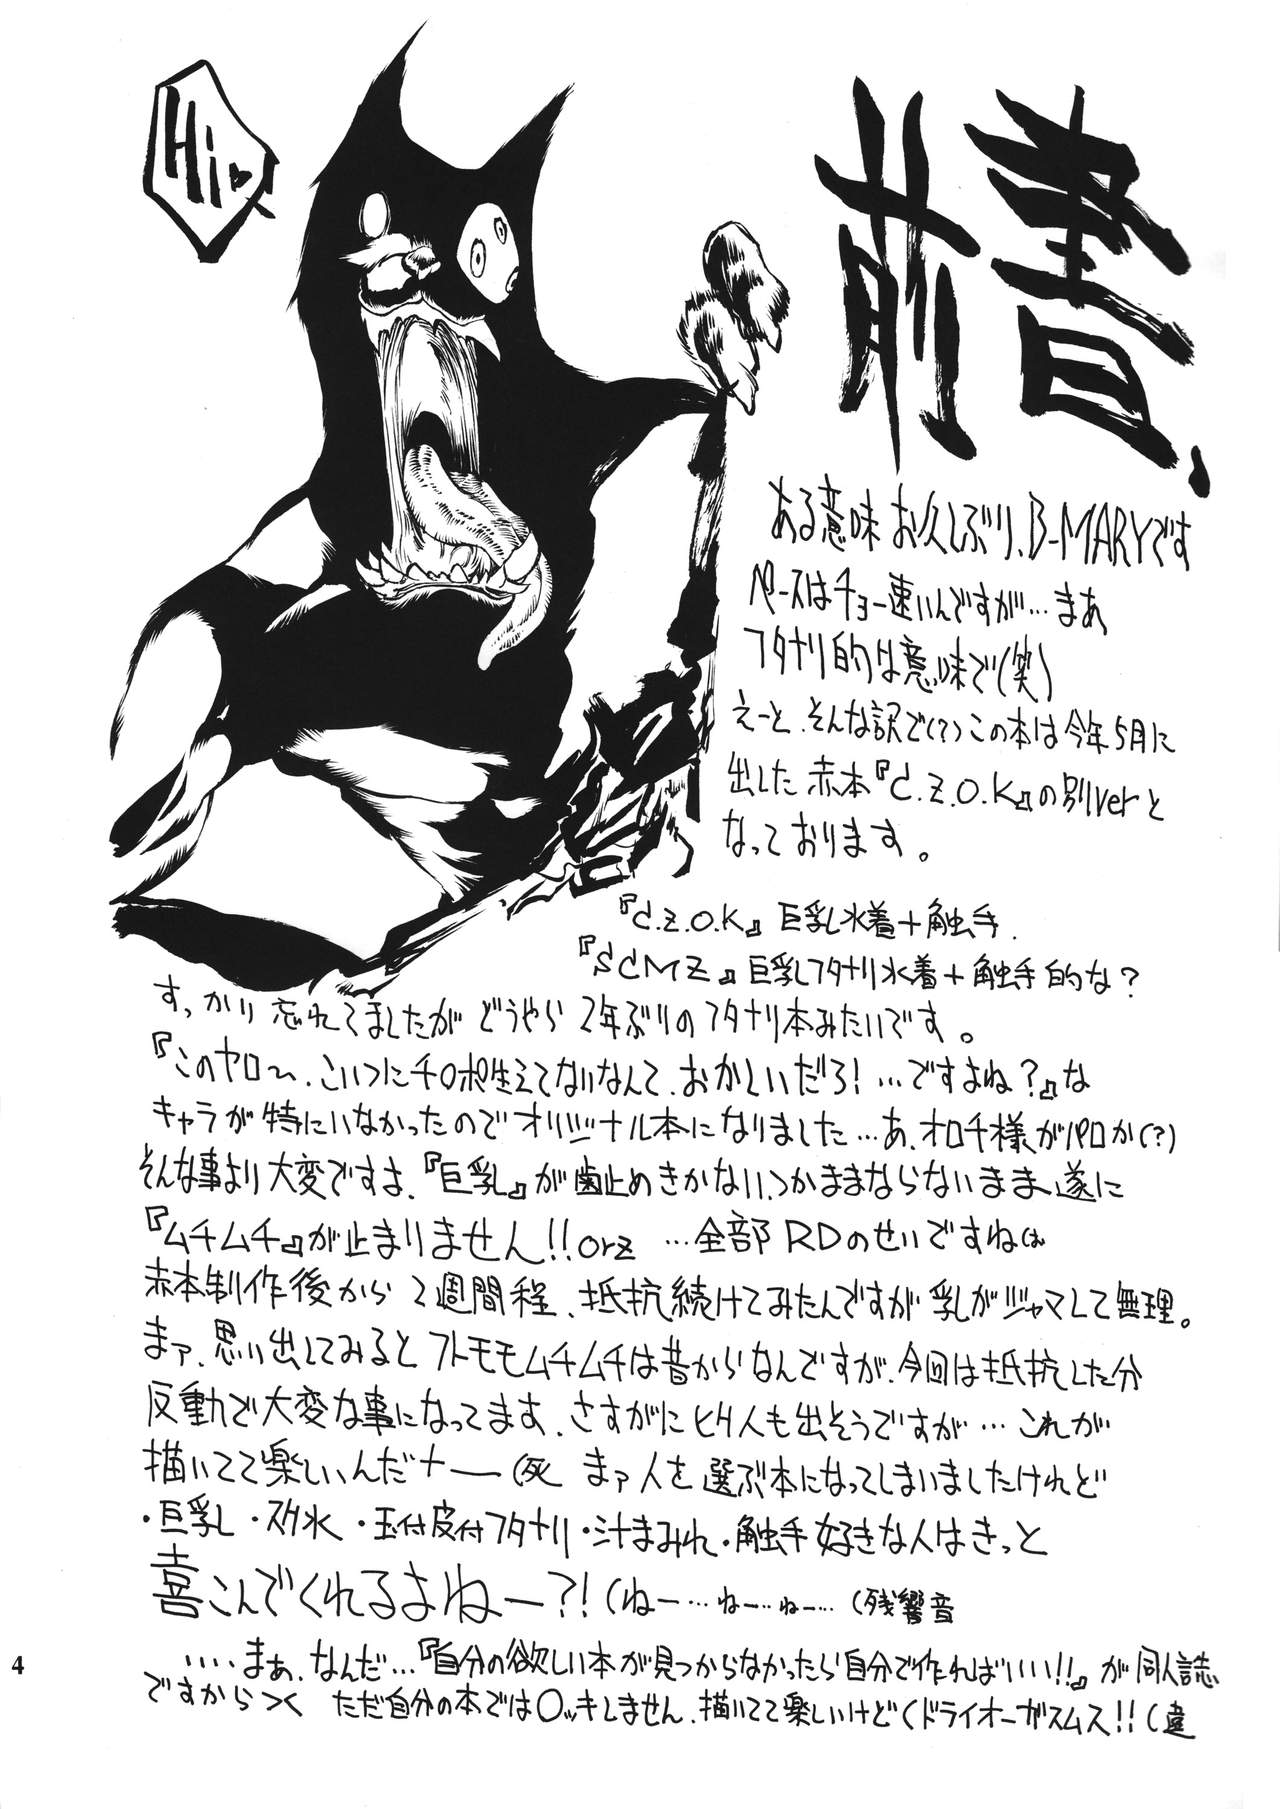 Hi♥
前書、
ある意味お久しぶり、B-MARYです
ペースはチョー速いんですが…まあ
フタナリ的な意味で(笑)
えーと、そんな訳で(?)この本は今年5月に
出した赤本『C.Z.O.K』の別verと
なっております。
『C.Z.O.K』巨乳水着+触手.
『SCMZ』巨乳フタナリ水着+触手的な?
すっかり忘れてましたがどうやら2年ぶりのフタナリ本みたいです。
『このヤロ〜、こいつにチ○ポ生えてないなんて、おかしいだろ!…ですよね?』な
キャラが特にいなかったのでオリジナル本になりました…あ、オロチ様がパロか(?)
そんな事より大変ですよ、『巨乳』が歯止めきかない、つかままならないまま遂に
『ムチムチ』が止まりません!!orz …全部RDのせいですねぇ
赤本制作後から2週間程、抵抗続けてみたんですが乳がジャマして無理。
まァ、思い出してみるとフトモモムチムチは昔からなんですが、今回は抵抗した分
反動で大変な事になってます、さすがにヒク人も出そうですが…これが
描いてて楽しいんだナー(死 まァ人を選ぶ本になってしまいましたけれど
・巨乳・スク水・玉付皮付フタナリ・汁まみれ・触手好きな人はきっと
喜こんでくれるよねー?!(ねー…ねー…ねー…(残響音
….まぁ、なんだ…『自分の欲しい本が見つからなかったら自分で作ればいい!!』が同人誌
ですからつく ただ自分の本では○ッキしません、描いてて楽しいけどくドライオーガスムス!!(違
4